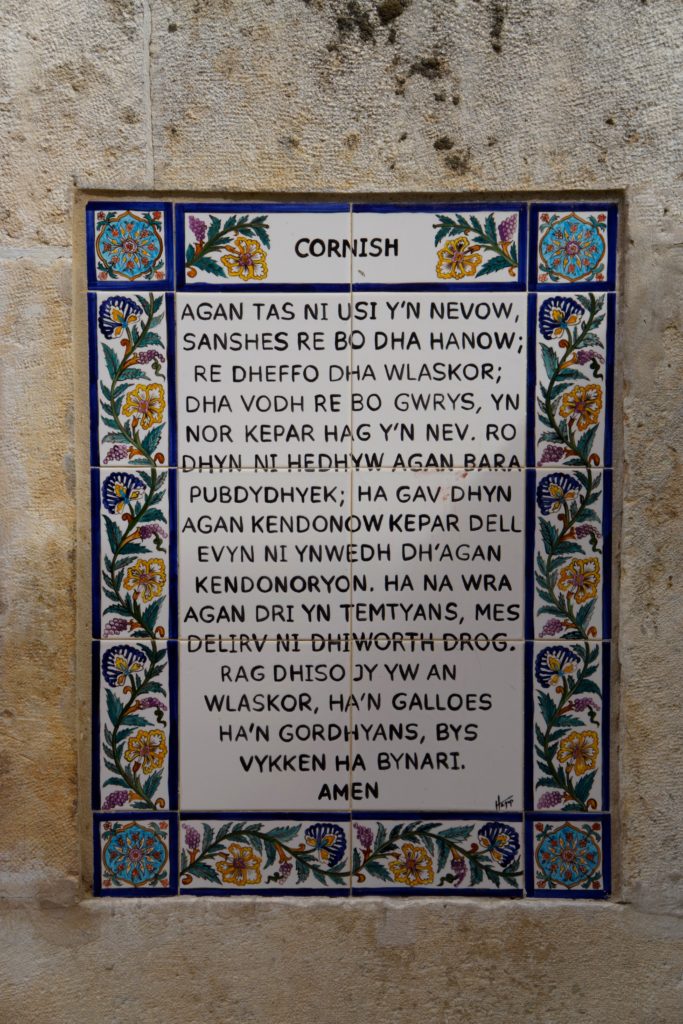 CORNISH
AGAN TAS NI USI Y'N NEVOW,
SANSHES RE BO DHA HANOW;
RE DHEFFO DHA WLASKOR;
DHA VODH RE BO GWRYS, YN
NOR KEPAR HAG Y'N NEV. RO
DHYN NI HEDHYW AGAN BARA
PUBDYDHYEK; HA GAV DHYN
AGAN KENDONOW KEPAR DELL
EVYN NI YNWEDH DH'AGAN
KENDONORYON. HA NA WRA
AGAN DRI YN TEMTYANS, MES
DELIRV NI DHIWORTH DROG.
RAG DHISO JY YW AN
WLASKOR, HA'N GALLOES
HA'N GORDHYANS, BYS
VYKKEN HA BYNARI.
AMEN